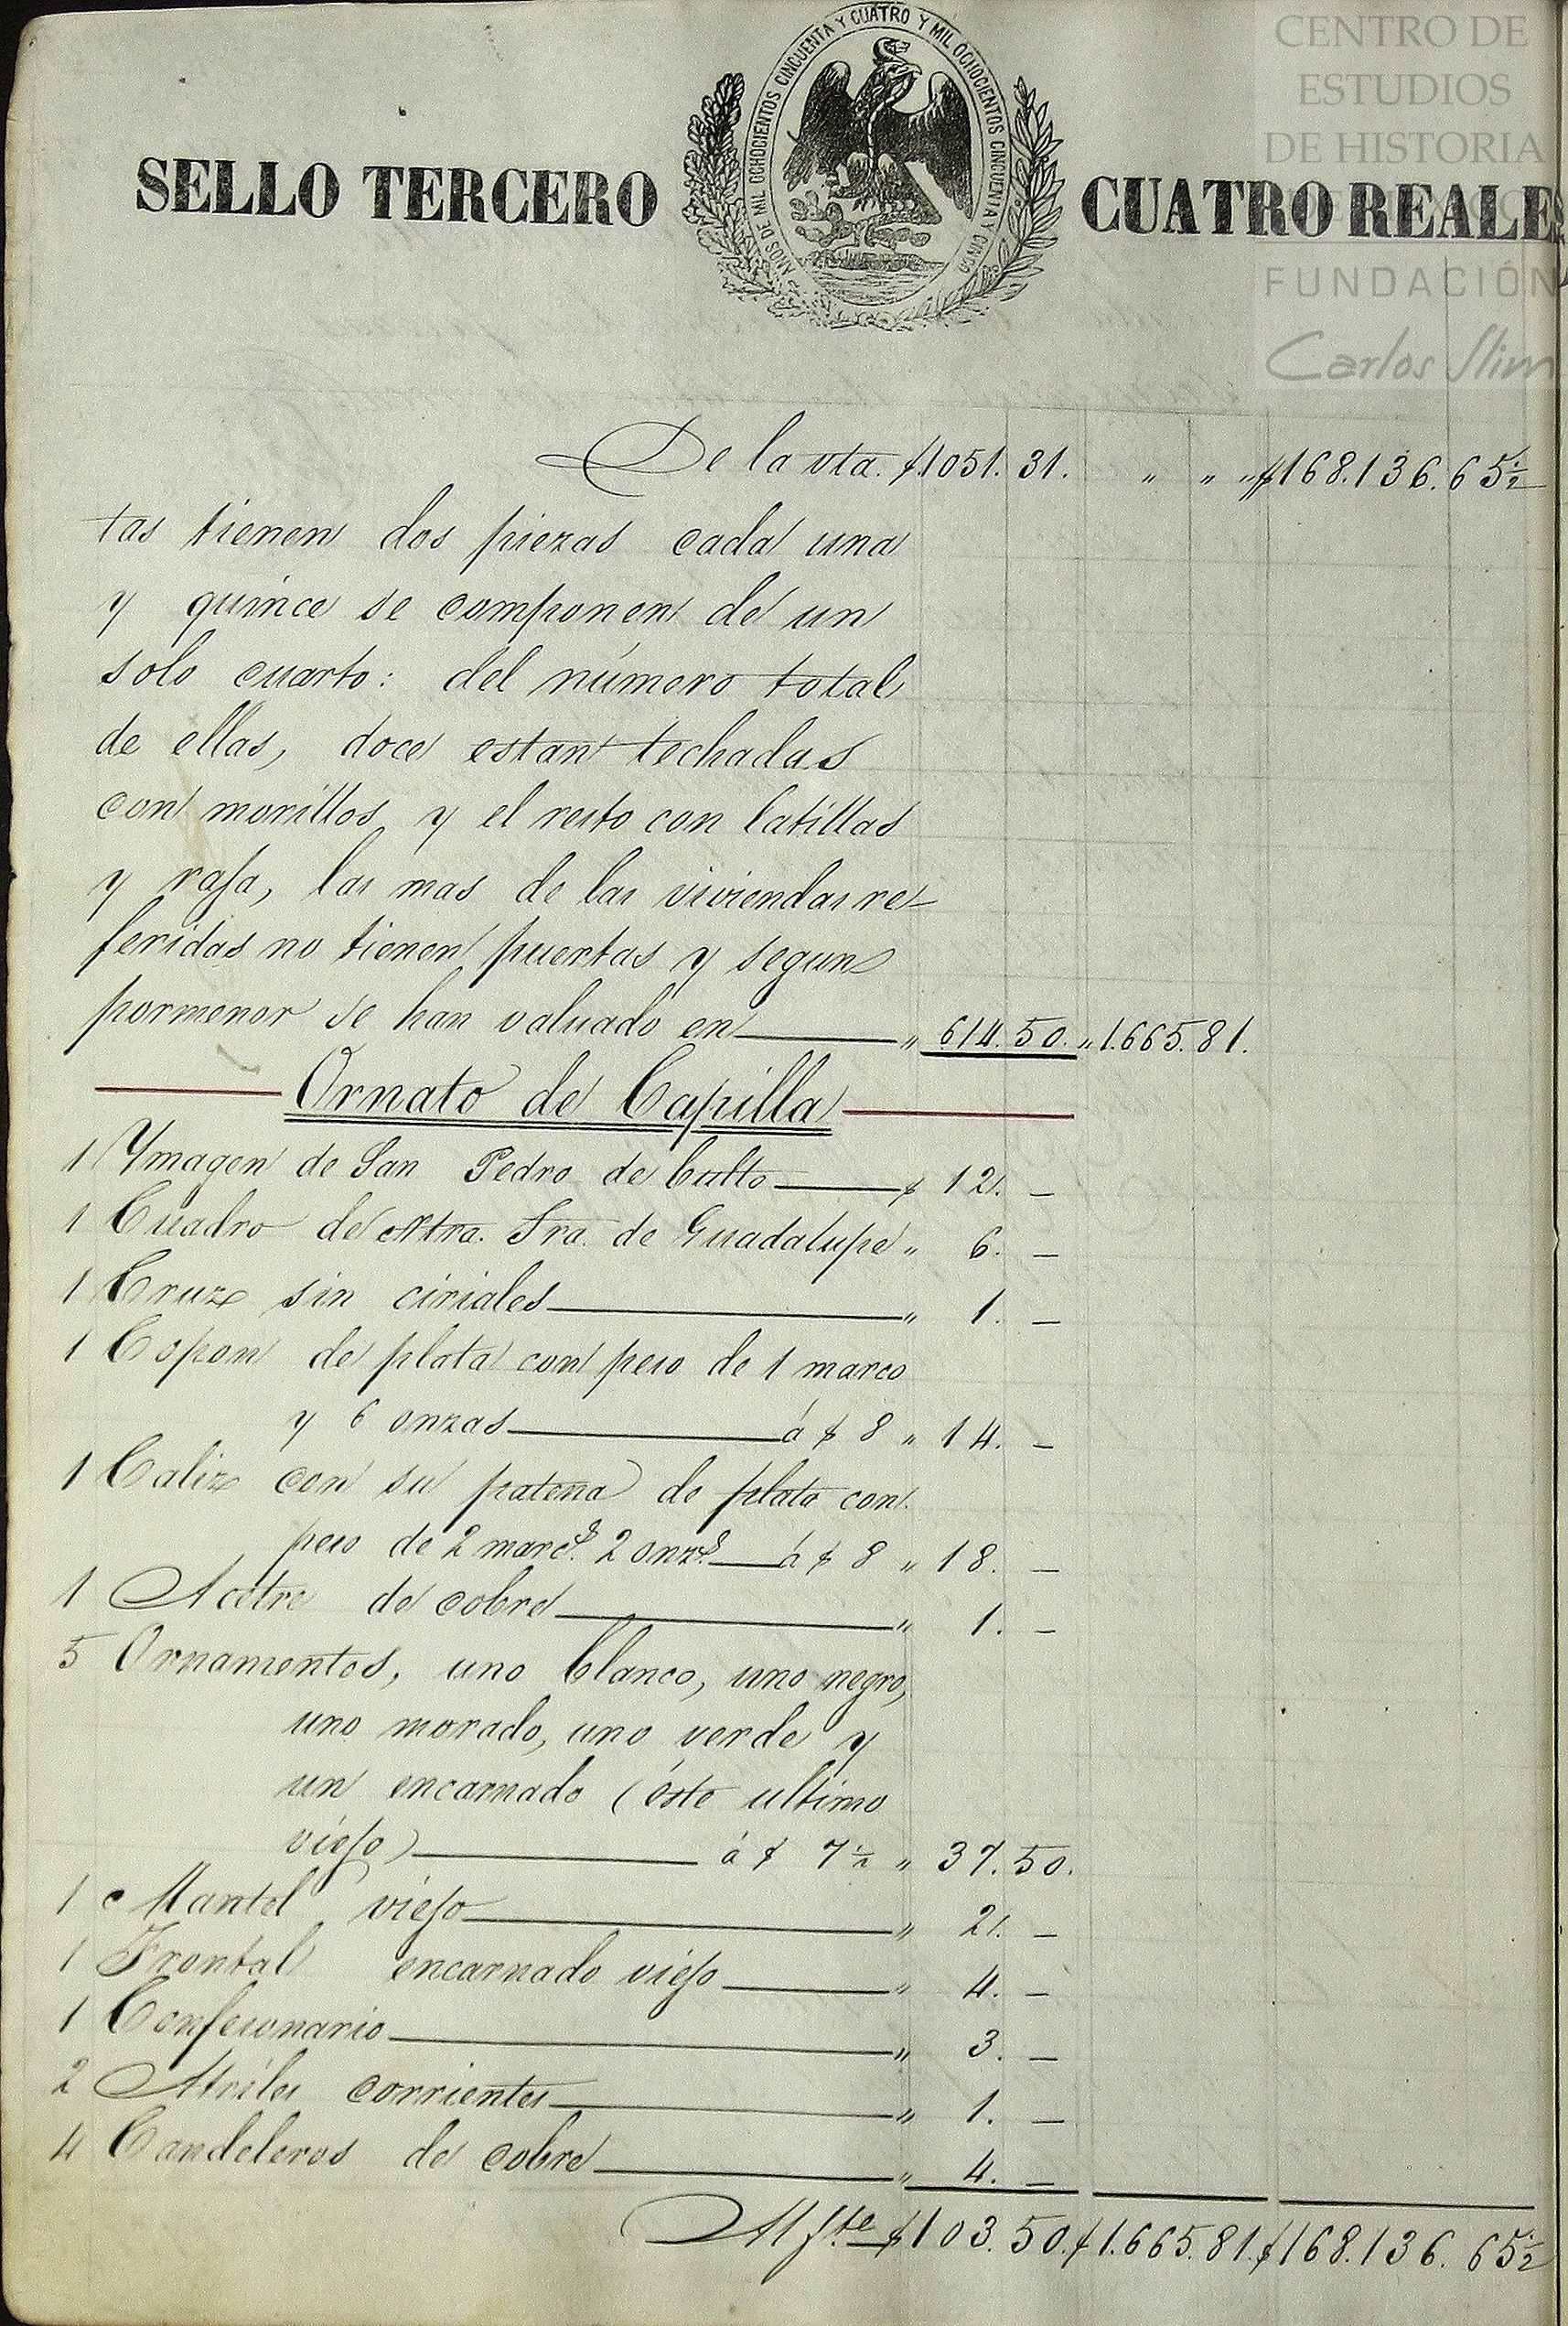 CENTRO DE
ESTUDIOS
DE HISTORIA
FUNDACIÓN
Carlos Slim
SELLO TERCERO
AÑOS DE MIL OCHOCIENTOS CINCUENTA Y CUATRO Y MIL OCHOCIENTOS CINCUENTA Y CINCO
CUATRO REALES
De la vta. $1051.31. " " " $168.136.65½
tas tienen dos piezas cada una
y quince se componen de un
solo cuarto: del número total
de ellas, doce estan techadas
con morillos y el resto con latillas
y rafa, las mas de las viviendas re-
feridas no tienen puertas y segun
pormenor se han valuado en " 614.50. " 1.665.81.
Ornato de Capilla
1 Ymagen de San Pedro de bulto $ 12. —
1 Cuadro de Ntra. Sra. de Guadalupe " 6. —
1 Cruz sin ciriales " 1. —
1 Copon de plata con peso de 1 marco
y 6 onzas á $ 8 " 14. —
1 Caliz con su patena de plata con
peso de 2 marcs. 2 onzs. á $ 8 " 18. —
1 Acetre de cobre " 1. —
5 Ornamentos, uno blanco, uno negro,
uno morado, uno verde y
un encarnado (éste ultimo
viejo) á $ 7½ " 37.50.
1 Mantel viejo " 2. —
1 Frontal encarnado viejo " 4. —
1 Confesionario " 3. —
2 Atriles corrientes " 1. —
4 Candeleros de cobre " 4. —
Al fte $103.50. $1.665.81. $168.136.65½